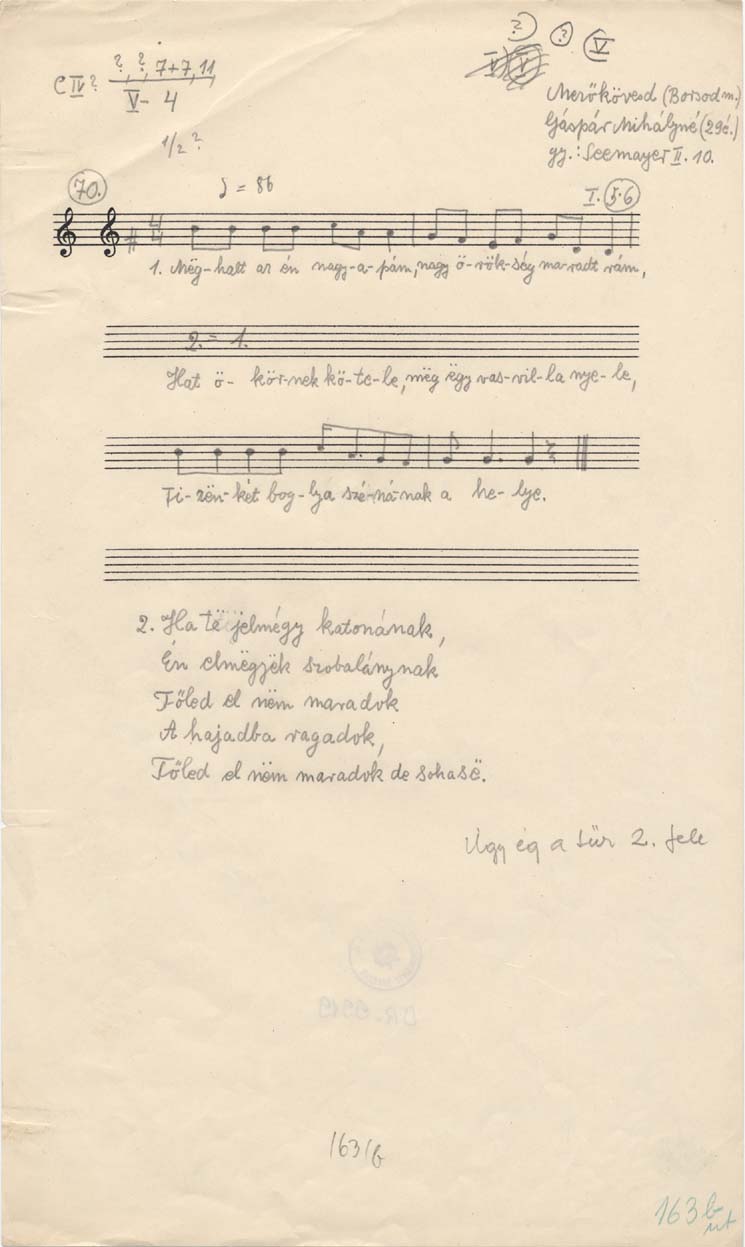 ? ? V
C IV? ?, ?, 7+7, 11
V- 4
1/2 ?
Mezőkövesd (Borsod m.)
Gáspár Mihályné (29é.)
gy.: Seemayer II. 10.
70.
= 86
I. 5-6
4
4
1. Mëg-halt az én nagy-a-pám, nagy ö-rök-ség ma-radt rám,
2. = 1.
Hat ö- kör-nek kö-te-le, mëg ëgy vas-vil-la nye-le,
Ti-zën-két bog-lya szé-ná-nak a he-lye.
2. Ha të jelmégy katonának,
Én elmëgyëk szobalánynak
Tőled el nëm maradok
A hajadba ragadok,
Tőled el nëm maradok de sohasë.
Úgy ég a tűz 2. fele
163/b
163 b